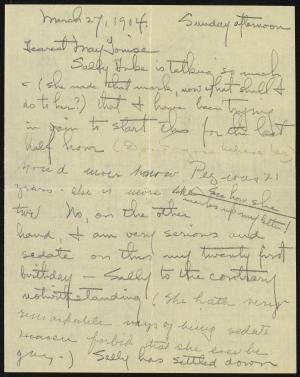 March 27, 1904. Sunday afternoon
Dearest May Louise
Sally is talking so much
(she made that mark, now what shall I
do to her?) that I have been trying
in vain to start this for the last
half hour (Don't you believe her,
you'd never know Peg was 21
years. She is more like
see how she
marks up my letter!
two No, on the other
hand, I am very serious and
sedate on this my twenty first
birthday — Sally to the contrary
notwithstanding (She hath very
remarkable ways of being sedate
heaven forbid that she ever be
gay.) Sally has settled down